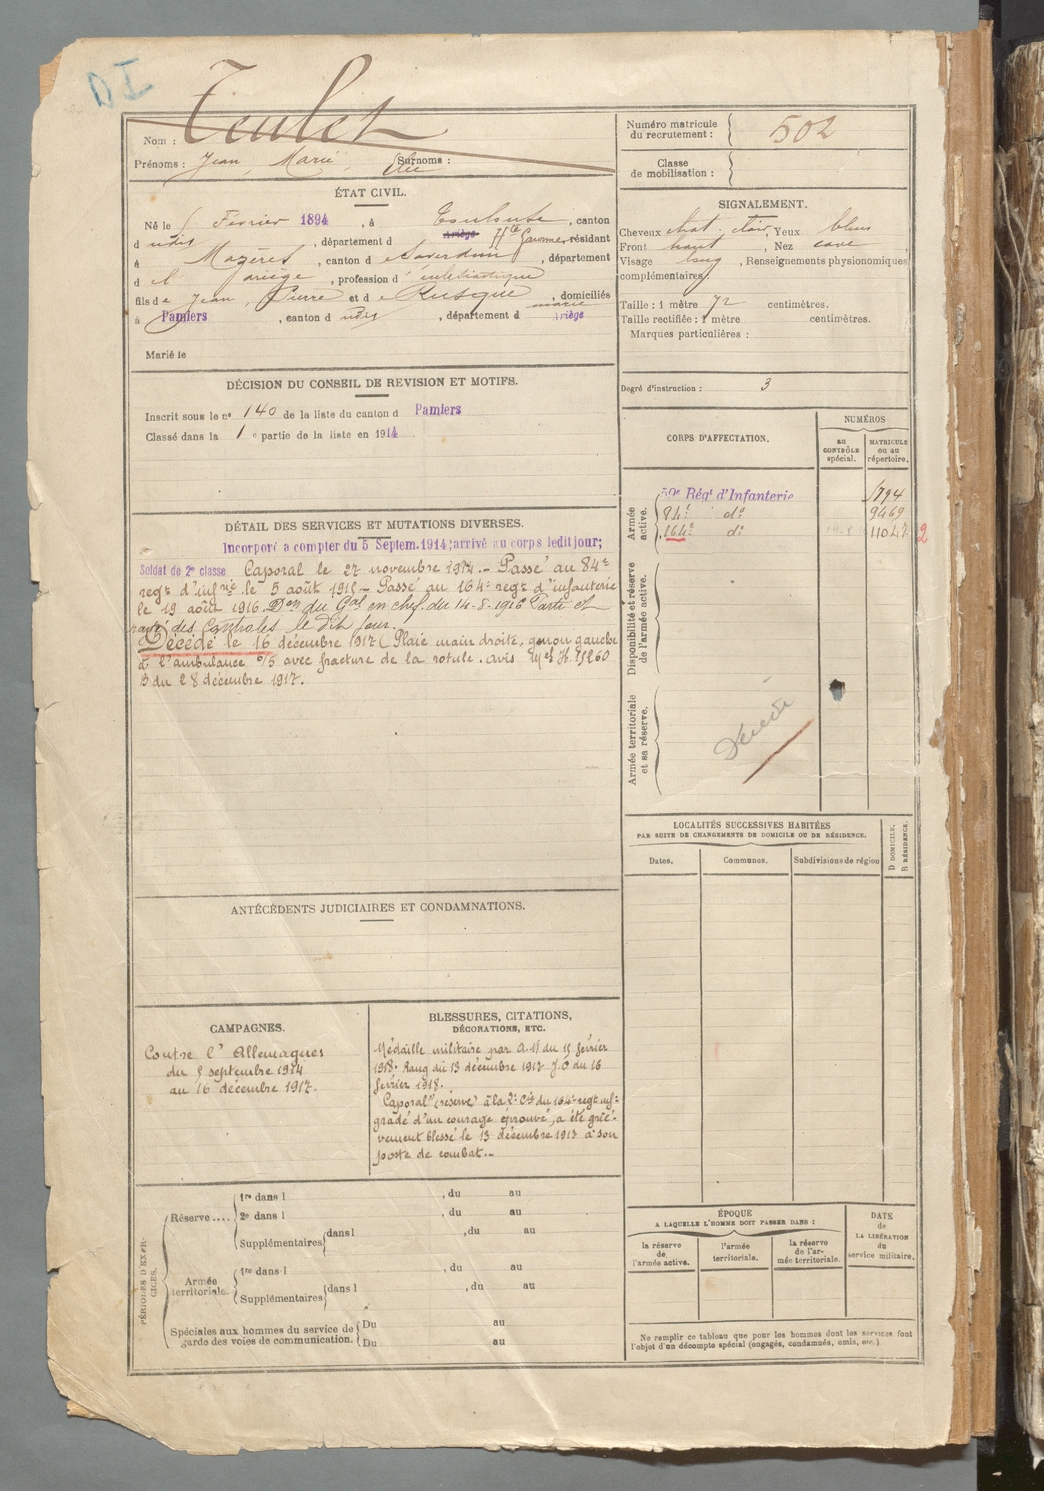 DI
Nom : Teulet
Prénoms : Jean, Marie, Elie Surnoms :
Numéro matricule du recrutement : 502
Classe de mobilisation :
ÉTAT CIVIL.
Né le Février 1894, à Toulouse, canton
d udit, département d Ariège Hte Garonne, résidant
à Mazères, canton d e Saverdun, département
d e l'Ariège, profession d' ecclésiastique
fils de Jean, Pierre et d e Rusque marie, domiciliés
à Pamiers, canton d udit, département d Ariège
Marié le
SIGNALEMENT.
Cheveux chat. clair, Yeux bleus
Front haut, Nez cave,
Visage long, Renseignements physionomiques
complémentaires
Taille : 1 mètre 72 centimètres.
Taille rectifiée : 1 mètre centimètres.
Marques particulières :
Degré d'instruction : 3
DÉCISION DU CONSEIL DE REVISION ET MOTIFS.
Inscrit sous le no 140 de la liste du canton d Pamiers
Classé dans la 1 e partie de la liste en 1914.
CORPS D'AFFECTATION.
NUMÉROS
au CONTRÔLE spécial.
MATRICULE ou au répertoire.
Armée active.
59e Régt d'Infanterie
84e do 9469
164e do 11047 2
Disponibilité et réserve de l'armée active.
Armée territoriale et sa réserve.
Décédé
DÉTAIL DES SERVICES ET MUTATIONS DIVERSES.
Incorporé à compter du 5 Septem. 1914; arrivé au corps ledit jour;
Soldat de 2e classe Caporal le 27 novembre 1914. – Passé au 84e
regt d'infrie le 5 août 1915 – Passé au 164e regt d'infanterie
le 19 août 1916. Don du Gal en chef du 14-8-1916 Parti et
rayé des Controles le dit jour.
Décédé le 16 décembre 1917 (Plaie main droite, genou gauche
à l'ambulance 0/5 avec fracture de la rotule. avis
B du 28 décembre 1917.
LOCALITÉS SUCCESSIVES HABITÉES
PAR SUITE DE CHANGEMENTS DE DOMICILE OU DE RÉSIDENCE.
Dates.
Communes.
Subdivisions de région
D DOMICILE. R RÉSIDENCE.
ANTÉCÉDENTS JUDICIAIRES ET CONDAMNATIONS.
CAMPAGNES.
Contre l'Allemagnes
du 5 septembre 1914
au 16 décembre 1917.
BLESSURES, CITATIONS,
DÉCORATIONS, ETC.
Médaille militaire par A. M du 15 février
1918. Rang du 13 décembre 1917 J.O du 16
février 1918.
Caporal (réserve) à la Cie du 164e regt inf:
gradé d'un courage éprouvé, a été griè-
vement blessé le 13 décembre 1917 à son
poste de combat. –
PÉRIODES D'EXERCICES.
Réserve....
1re dans l , du au
2e dans l , du au
Supplémentaires dans l , du au
Armée territoriale.
1re dans l , du au
Supplémentaires dans l , du au
Spéciales aux hommes du service de
garde des voies de communication.
Du au
Du au
ÉPOQUE
A LAQUELLE L'HOMME DOIT PASSER DANS :
la réserve de l'armée active.
l'armée territoriale.
la réserve de l'armée territoriale.
DATE de LA LIBÉRATION du service militaire.
Ne remplir ce tableau que pour les hommes dont les services font
l'objet d'un décompte spécial (engagés, condamnés, omis, etc.)